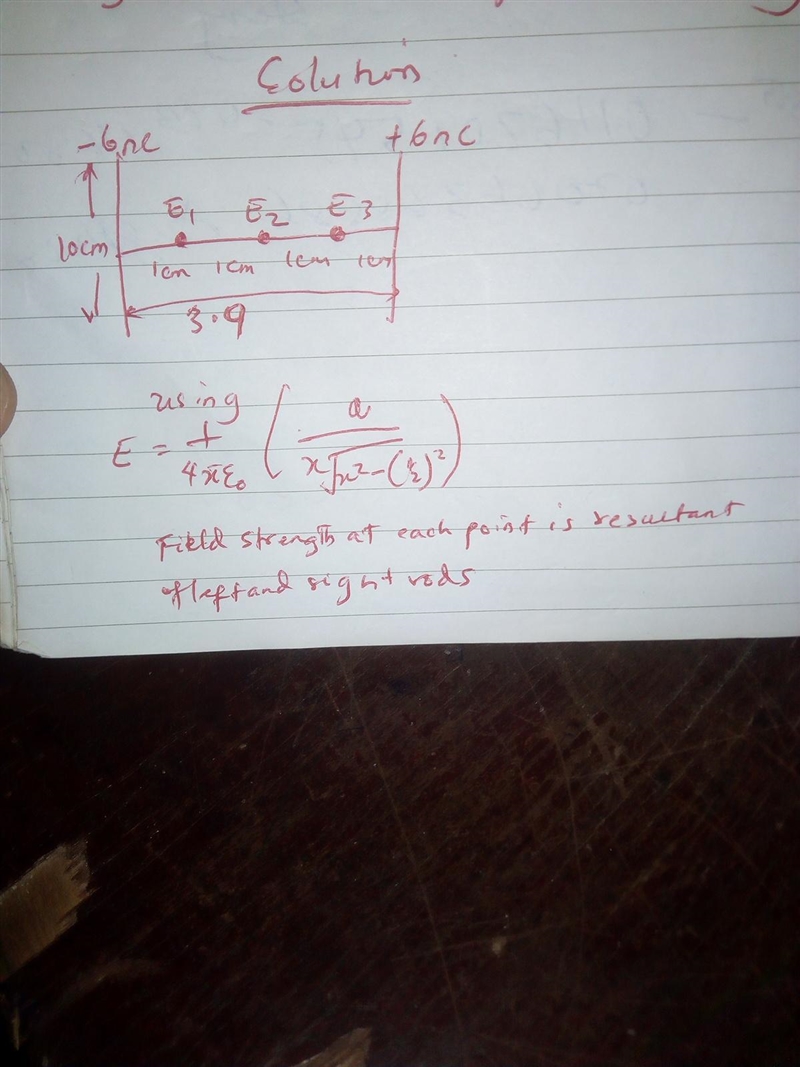 Solution
-6nc +6nc
E1 E2 E3
10cm
1cm 1cm 1cm 1cm
3.9
using
E = 1/4πε0 ( Q / x√x²-(L/2)² )
Field strength at each point is resultant
of left and right rods